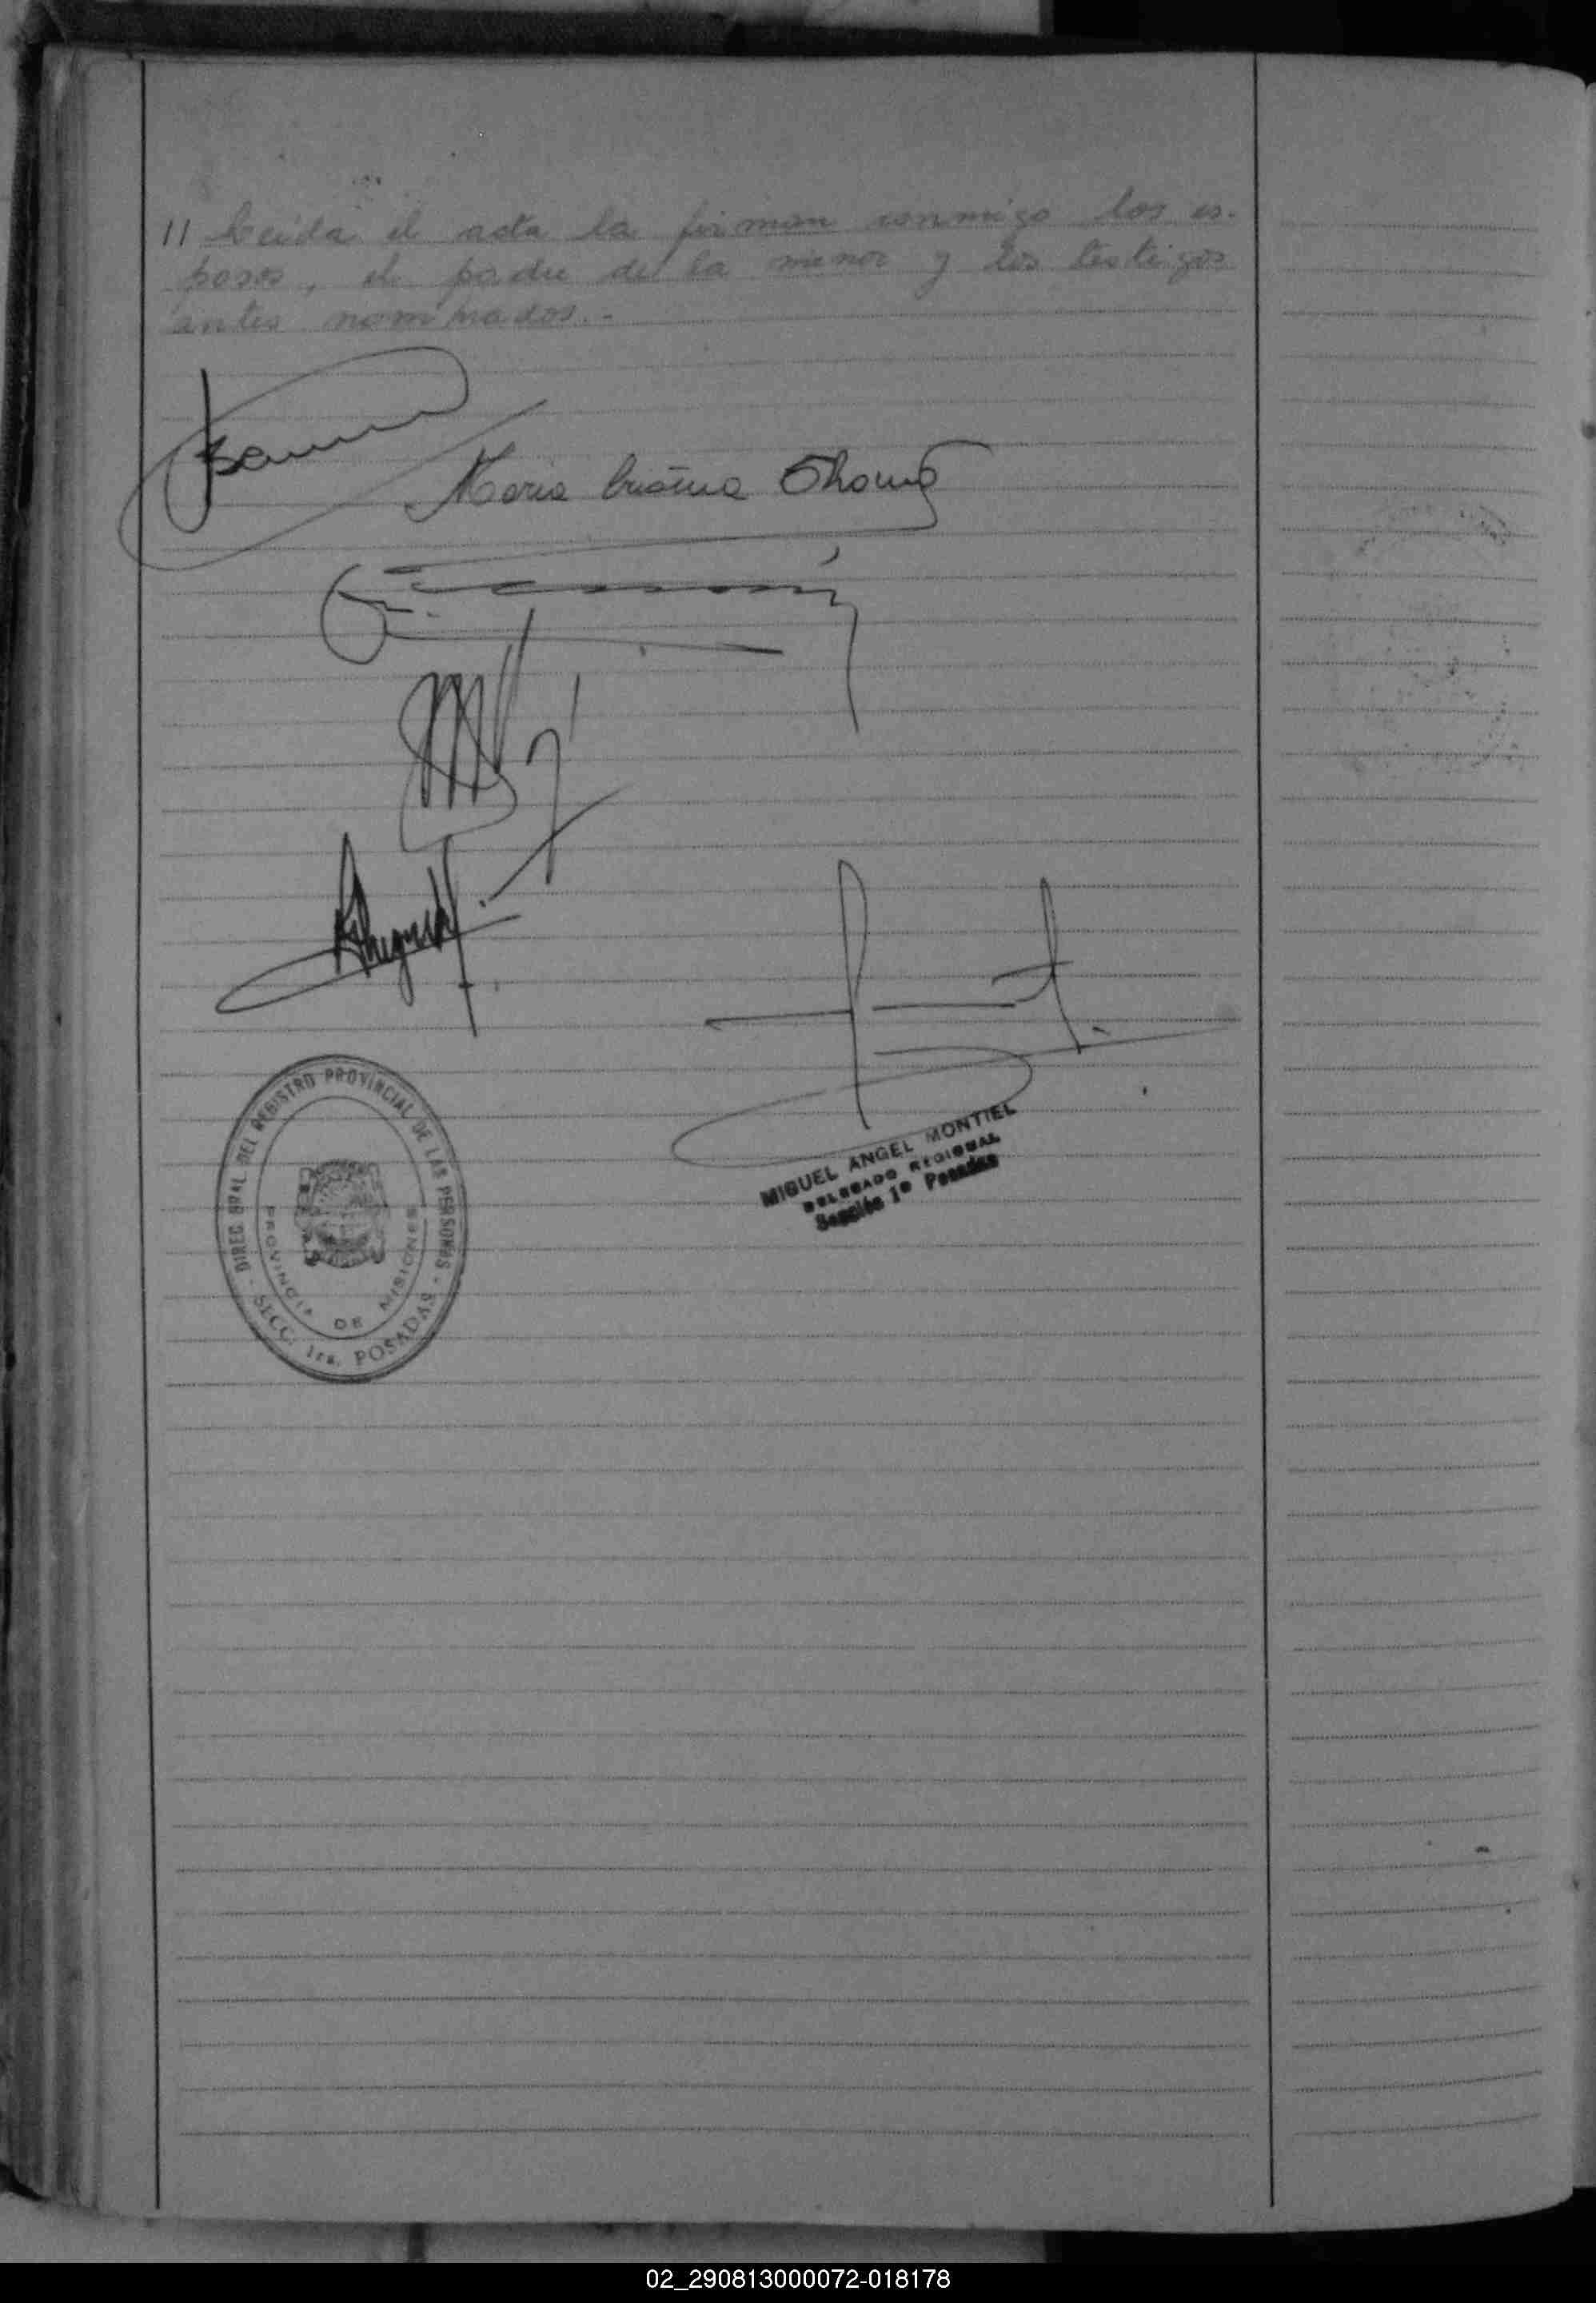 // Leída el acta la firman conmigo los es-
posos, el padre de la menor y los testigos
antes nominados.-
Maria Cristina
MIGUEL ANGEL MONTIEL
DELEGADO REGIONAL
Sección 1ª Posadas
DIREC. GRAL. DEL REGISTRO PROVINCIAL DE LAS PERSONAS
PROVINCIA DE MISIONES
SECC. 1ra. POSADAS
02_290813000072-018178